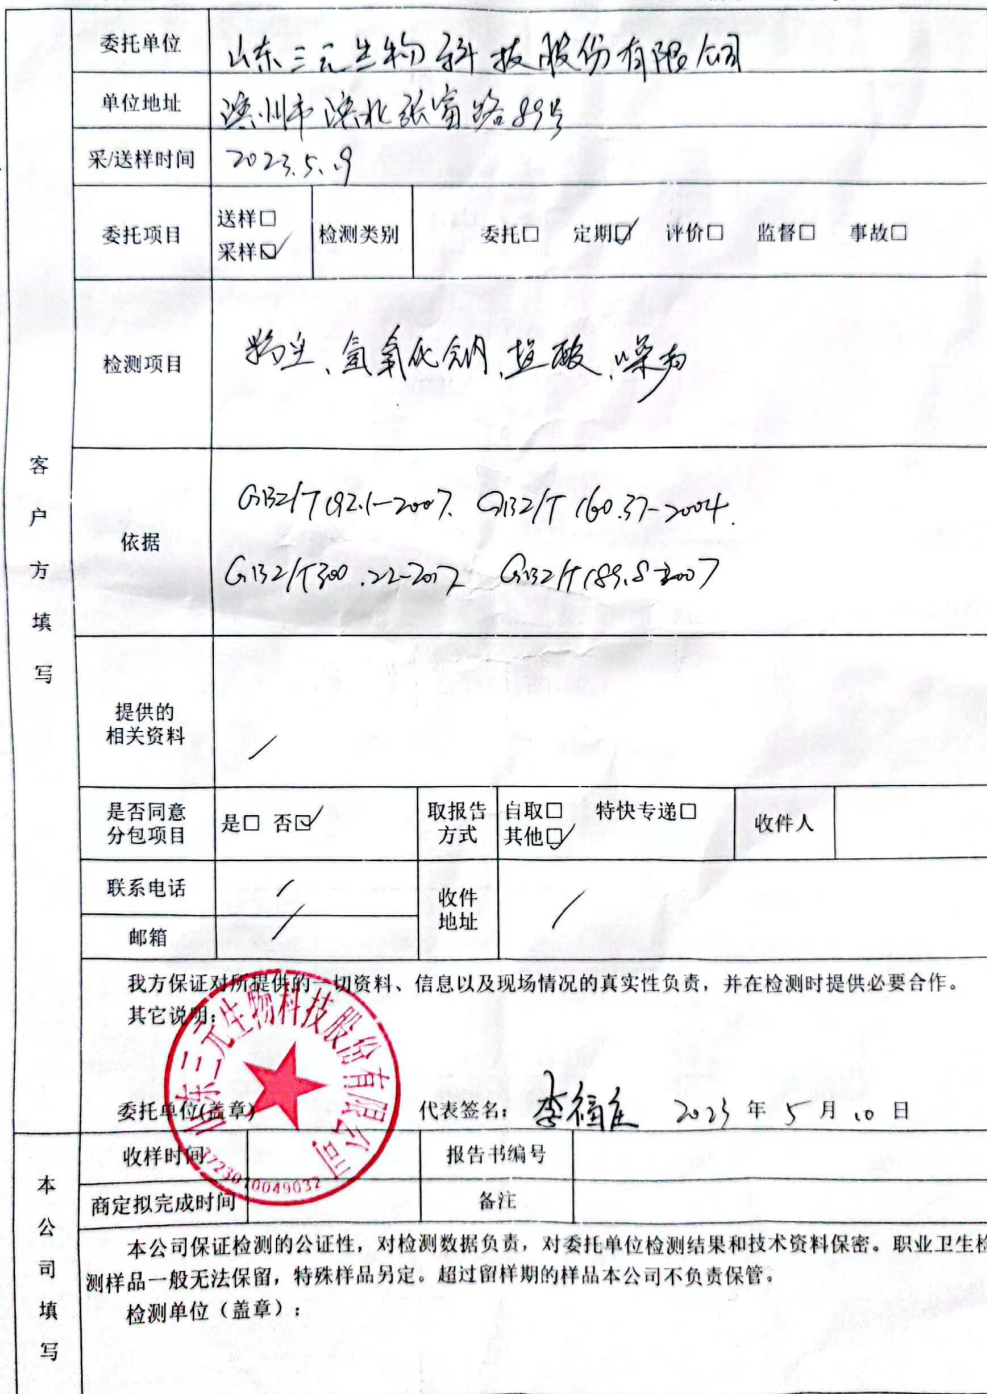 委托单位 山东三元生物科技股份有限公司
单位地址 滨州市滨北张富路89号
采/送样时间 2023.5.9
委托项目 送样□ 采样☑ 检测类别 委托□ 定期☑ 评价□ 监督□ 事故□
检测项目 粉尘、氢氧化钠、盐酸、噪声
客户方填写
依据 GBZ/T192.1-2007. GBZ/T 160.37-2004.
GBZ/T300.22-2017 GBZ/T189.8-2007
提供的
相关资料 /
是否同意
分包项目 是□ 否☑ 取报告
方式 自取□ 特快专递□
其他☑ 收件人
联系电话 / 收件
地址 /
邮箱 /
我方保证对所提供的一切资料、信息以及现场情况的真实性负责，并在检测时提供必要合作。
其它说明：
山东三元生物科技股份有限公司
3723010049032
委托单位(盖章) 代表签名： 李福 2023 年 5 月 10 日
本公司填写
收样时间 报告书编号
商定拟完成时间 备注
本公司保证检测的公证性，对检测数据负责，对委托单位检测结果和技术资料保密。职业卫生检
测样品一般无法保留，特殊样品另定。超过留样期的样品本公司不负责保管。
检测单位（盖章）：